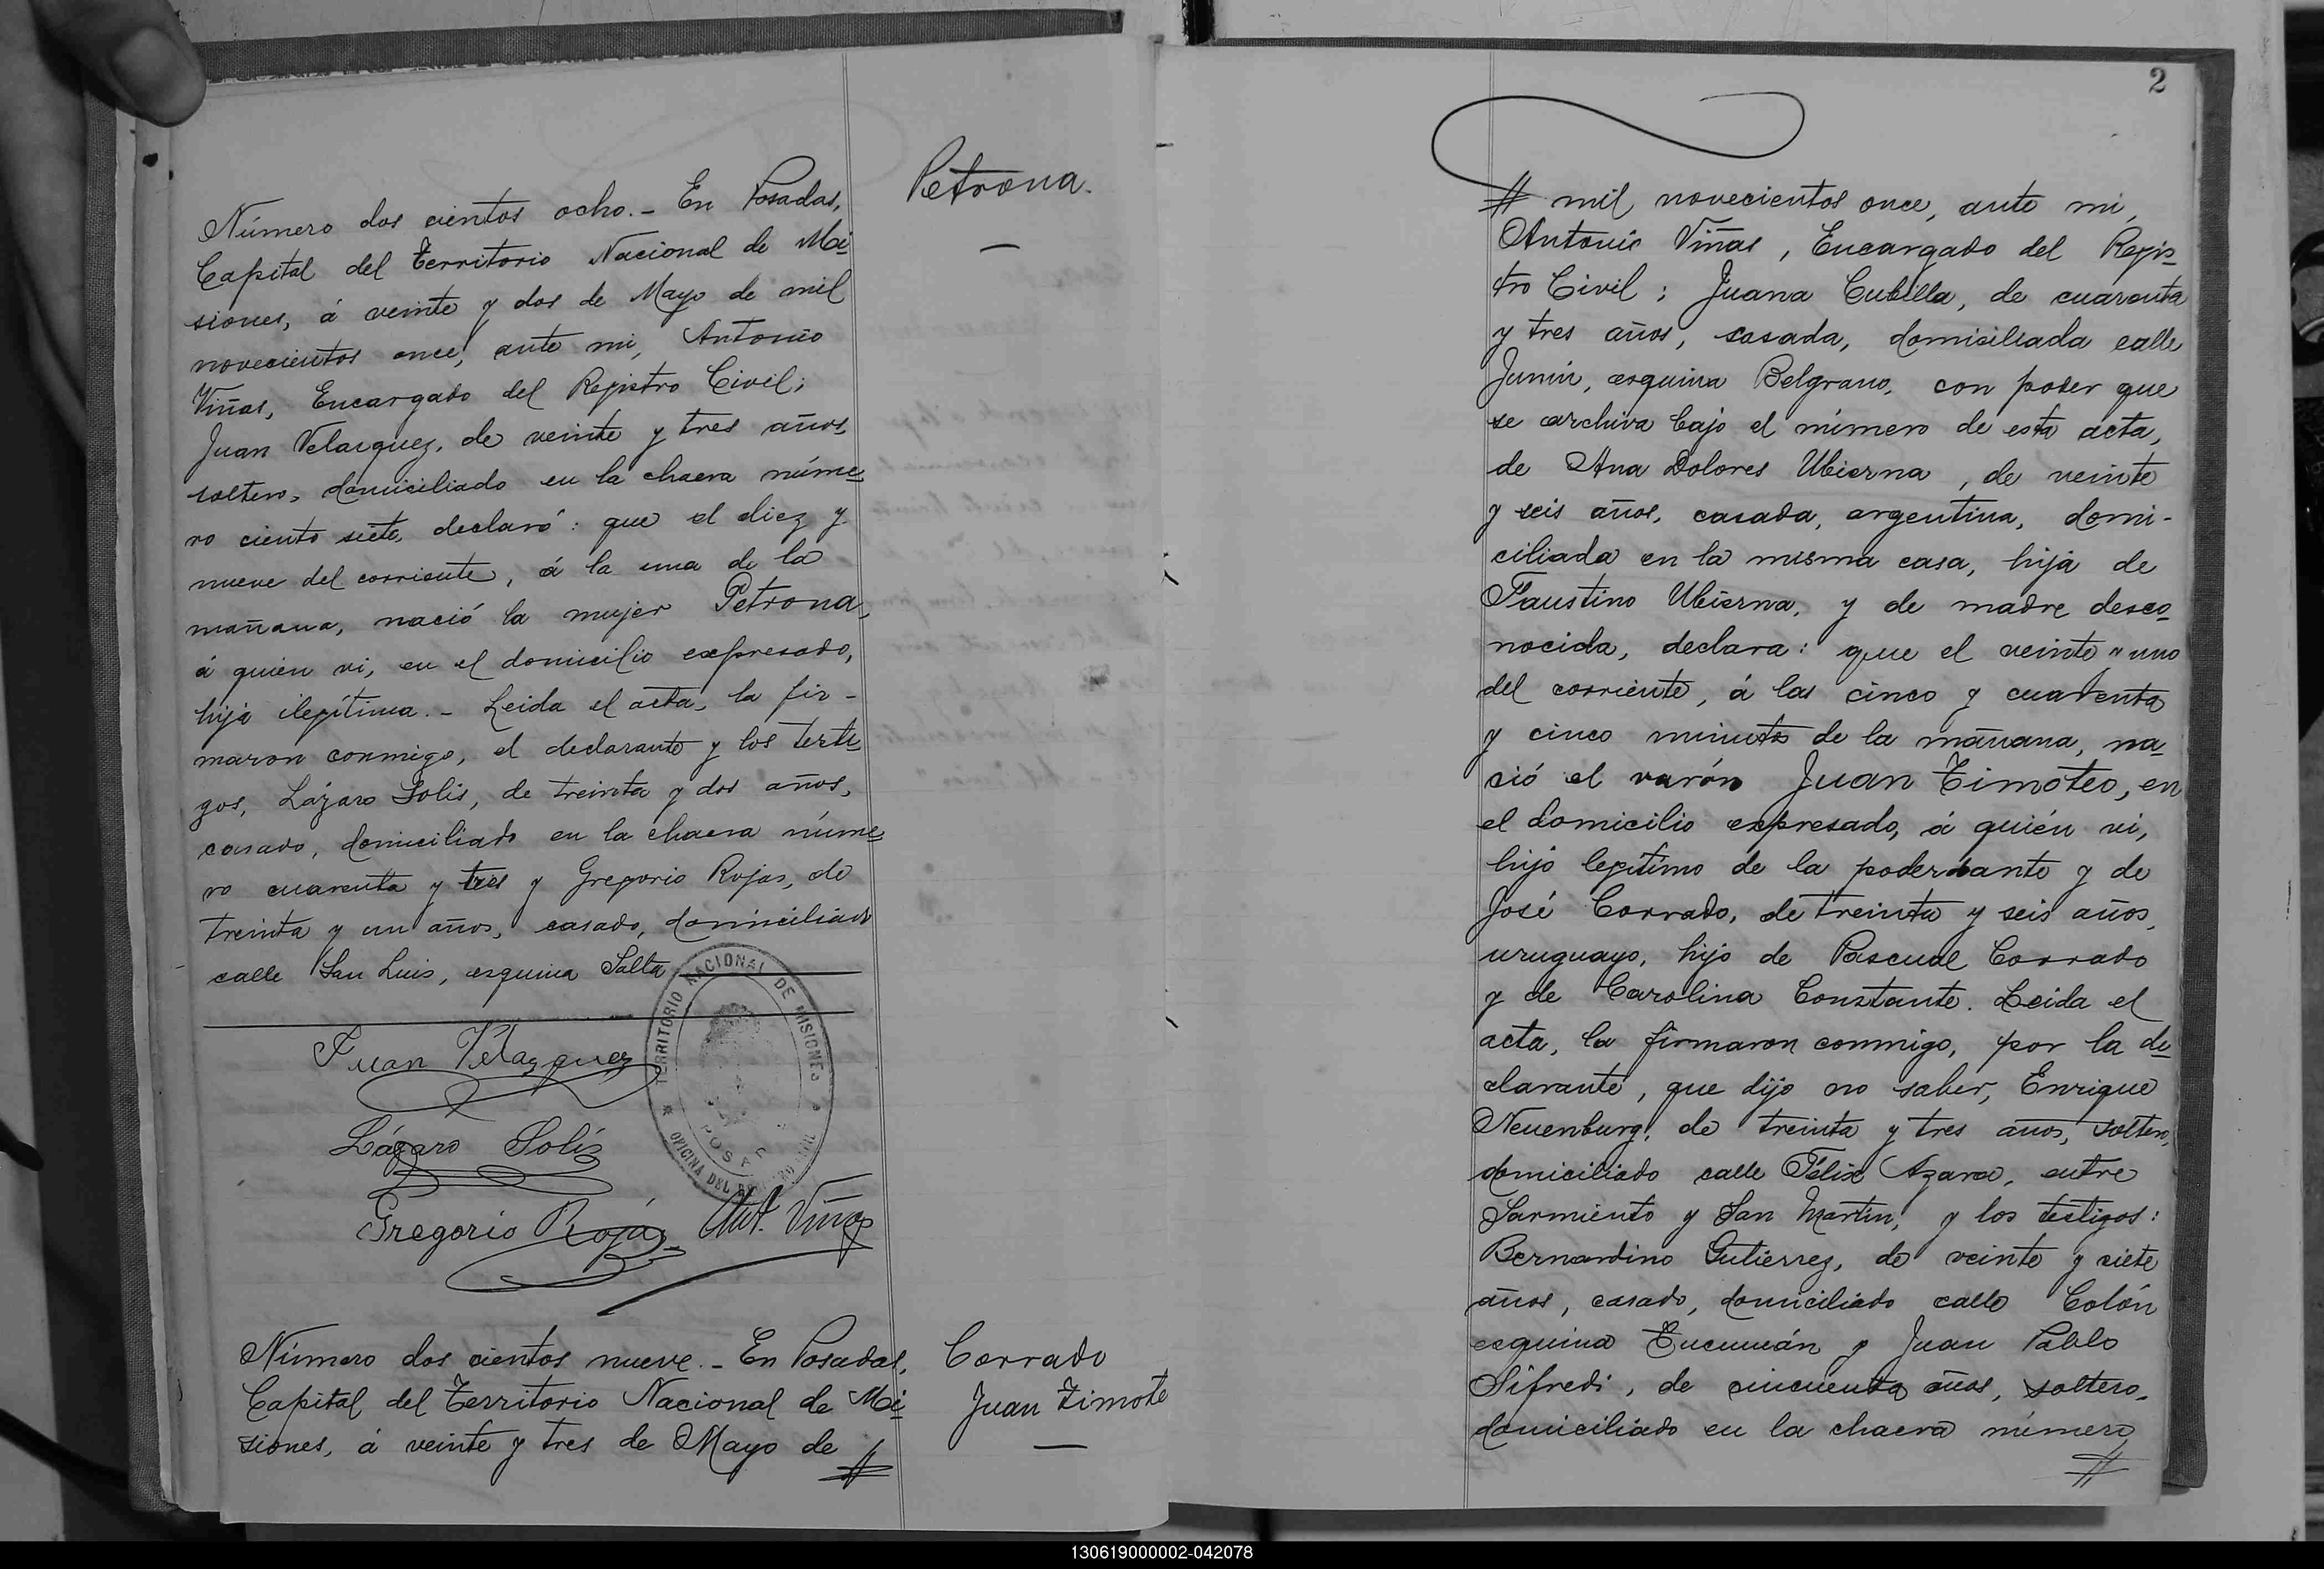 Petrona.
Número dos cientos ocho. - En Posadas,
Capital del Territorio Nacional de Mi
siones, á veinte y dos de Mayo de mil
novecientos once, ante mi, Antonio
Viñas, Encargado del Registro Civil;
Juan Velazquez, de veinte y tres años,
soltero, domiciliado en la chacra núme
ro ciento siete, declaró: que el diez y
nueve del corriente, á la una de la
mañana, nació la mujer Petrona,
á quien vi, en el domicilio expresado,
hija ilegítima. - Leida el acta, la fir-
maron conmigo, el declarante y los testi
gos, Lázaro Solis, de treinta y dos años,
casado, domiciliado en la chacra núme
ro cuarenta y tres y Gregorio Rojas, de
treinta y un años, casado, domiciliado
calle San Luis, esquina Salta
TERRITORIO NACIONAL DE MISIONES
OFICINA DEL REGISTRO CIVIL
Juan Velazquez
Lázaro Solís
Gregorio Rojas Ant. Viñas
Corrado
Juan Timote
Número dos cientos nueve. - En Posadas,
Capital del Territorio Nacional de Mi
siones, á veinte y tres de Mayo de #
2
# mil novecientos once, ante mi,
Antonio Viñas, Encargado del Regis
tro Civil; Juana Cubilla, de cuarenta
y tres años, casada, domiciliada calle
Junin, esquina Belgrano, con poder que
se archiva bajo el número de esta acta,
de Ana Dolores Ubierna, de veinte
y seis años, casada, argentina, domi-
ciliada en la misma casa, hija de
Faustino Ubierna, y de madre desco
nocida, declara: que el veinte y uno
del corriente, á las cinco y cuarenta
y cinco minutos de la mañana, na
ció el varón Juan Timoteo, en
el domicilio expresado, á quién vi,
hijo legítimo de la poderdante y de
José Corrado, de treinta y seis años,
uruguayo, hijo de Pascual Corrado
y de Carolina Constante. Leida el
acta, la firmaron conmigo, por la de
clarante, que dijo no saber, Enrique
Neuenburg, de treinta y tres años, soltero,
domiciliado calle Félix Azara, entre
Sarmiento y San Martin, y los testigos:
Bernardino Gutierrez, de veinte y siete
años, casado, domiciliado calle Colón
esquina Tucumán y Juan Pablo
Sifredi, de cincuenta años, soltero,
domiciliado en la chacra número
#
130619000002-042078